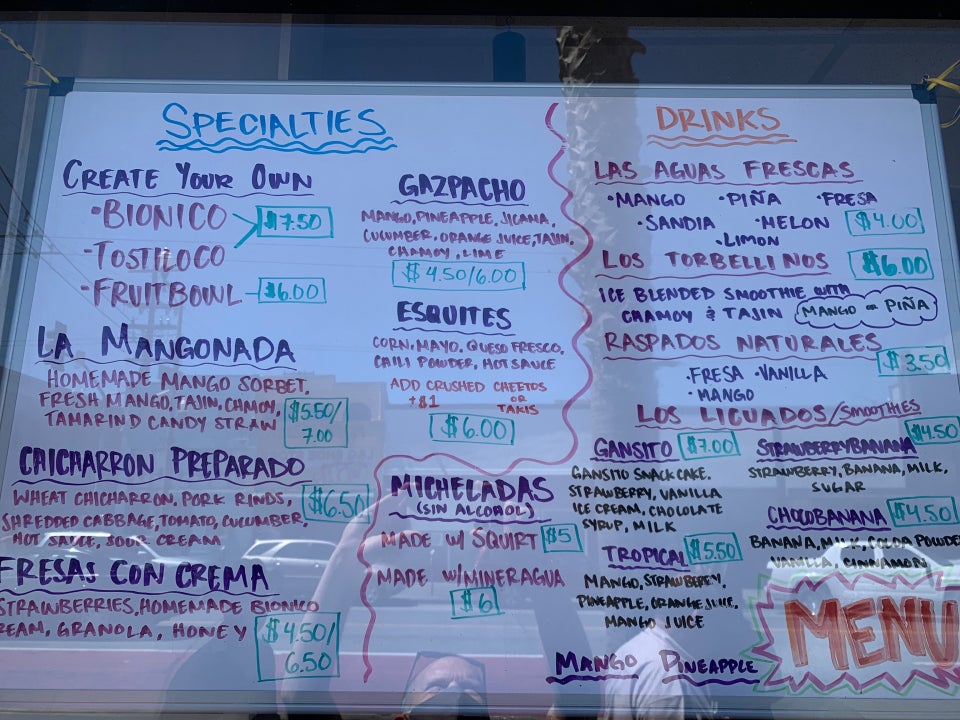 SPECIALTIES
CREATE YOUR OWN
•BIONICO
$7.50
•TOSTILOCO
•FRUITBOWL
$6.00
LA MANGONADA
HOMEMADE MANGO SORBET,
FRESH MANGO, TAJIN, CHMOY,
TAMARIND CANDY STRAW
$5.50/
7.00
CHICHARRON PREPARADO
WHEAT CHICHARRON, PORK RINDS,
SHREDDED CABBAGE, TOMATO, CUCUMBER,
HOT SAUCE, SOUR CREAM
$6.50
FRESAS CON CREMA
STRAWBERRIES, HOMEMADE BIONICO
REAM, GRANOLA, HONEY
$4.50/
6.50
GAZPACHO
MANGO, PINEAPPLE, JICAMA,
CUCUMBER, ORANGE JUICE, TAJIN,
CHAMOY, LIME
$4.50/6.00
ESQUITES
CORN, MAYO, QUESO FRESCO,
CHILI POWDER, HOT SAUCE
ADD CRUSHED CHEETOS
+$1 OR
TAKIS
$6.00
MICHELADAS
(SIN ALCOHOL)
MADE W/ SQUIRT $5
MADE W/MINERAGUA
$6
DRINKS
LAS AGUAS FRESCAS
•MANGO •PIÑA •FRESA
•SANDIA •MELON $4.00
•LIMON
LOS TORBELLINOS $6.00
ICE BLENDED SMOOTHIE WITH
CHAMOY & TAJIN MANGO or PIÑA
RASPADOS NATURALES
$3.50
•FRESA •VANILLA
•MANGO
LOS LICUADOS/SMOOTHIES
GANSITO $7.00
GANSITO SNACK CAKE.
STRAWBERRY, VANILLA
ICE CREAM, CHOCOLATE
SYRUP, MILK
STRAWBERRYBANANA $4.50
STRAWBERRY, BANANA, MILK,
SUGAR
TROPICAL $5.50
MANGO, STRAWBERRY,
PINEAPPLE, ORANGE JUICE,
MANGO JUICE
CHOCOBANANA $4.50
BANANA, MILK, COCOA POWDE
VANILLA, CINNAMON
MANGO PINEAPPLE
MENU